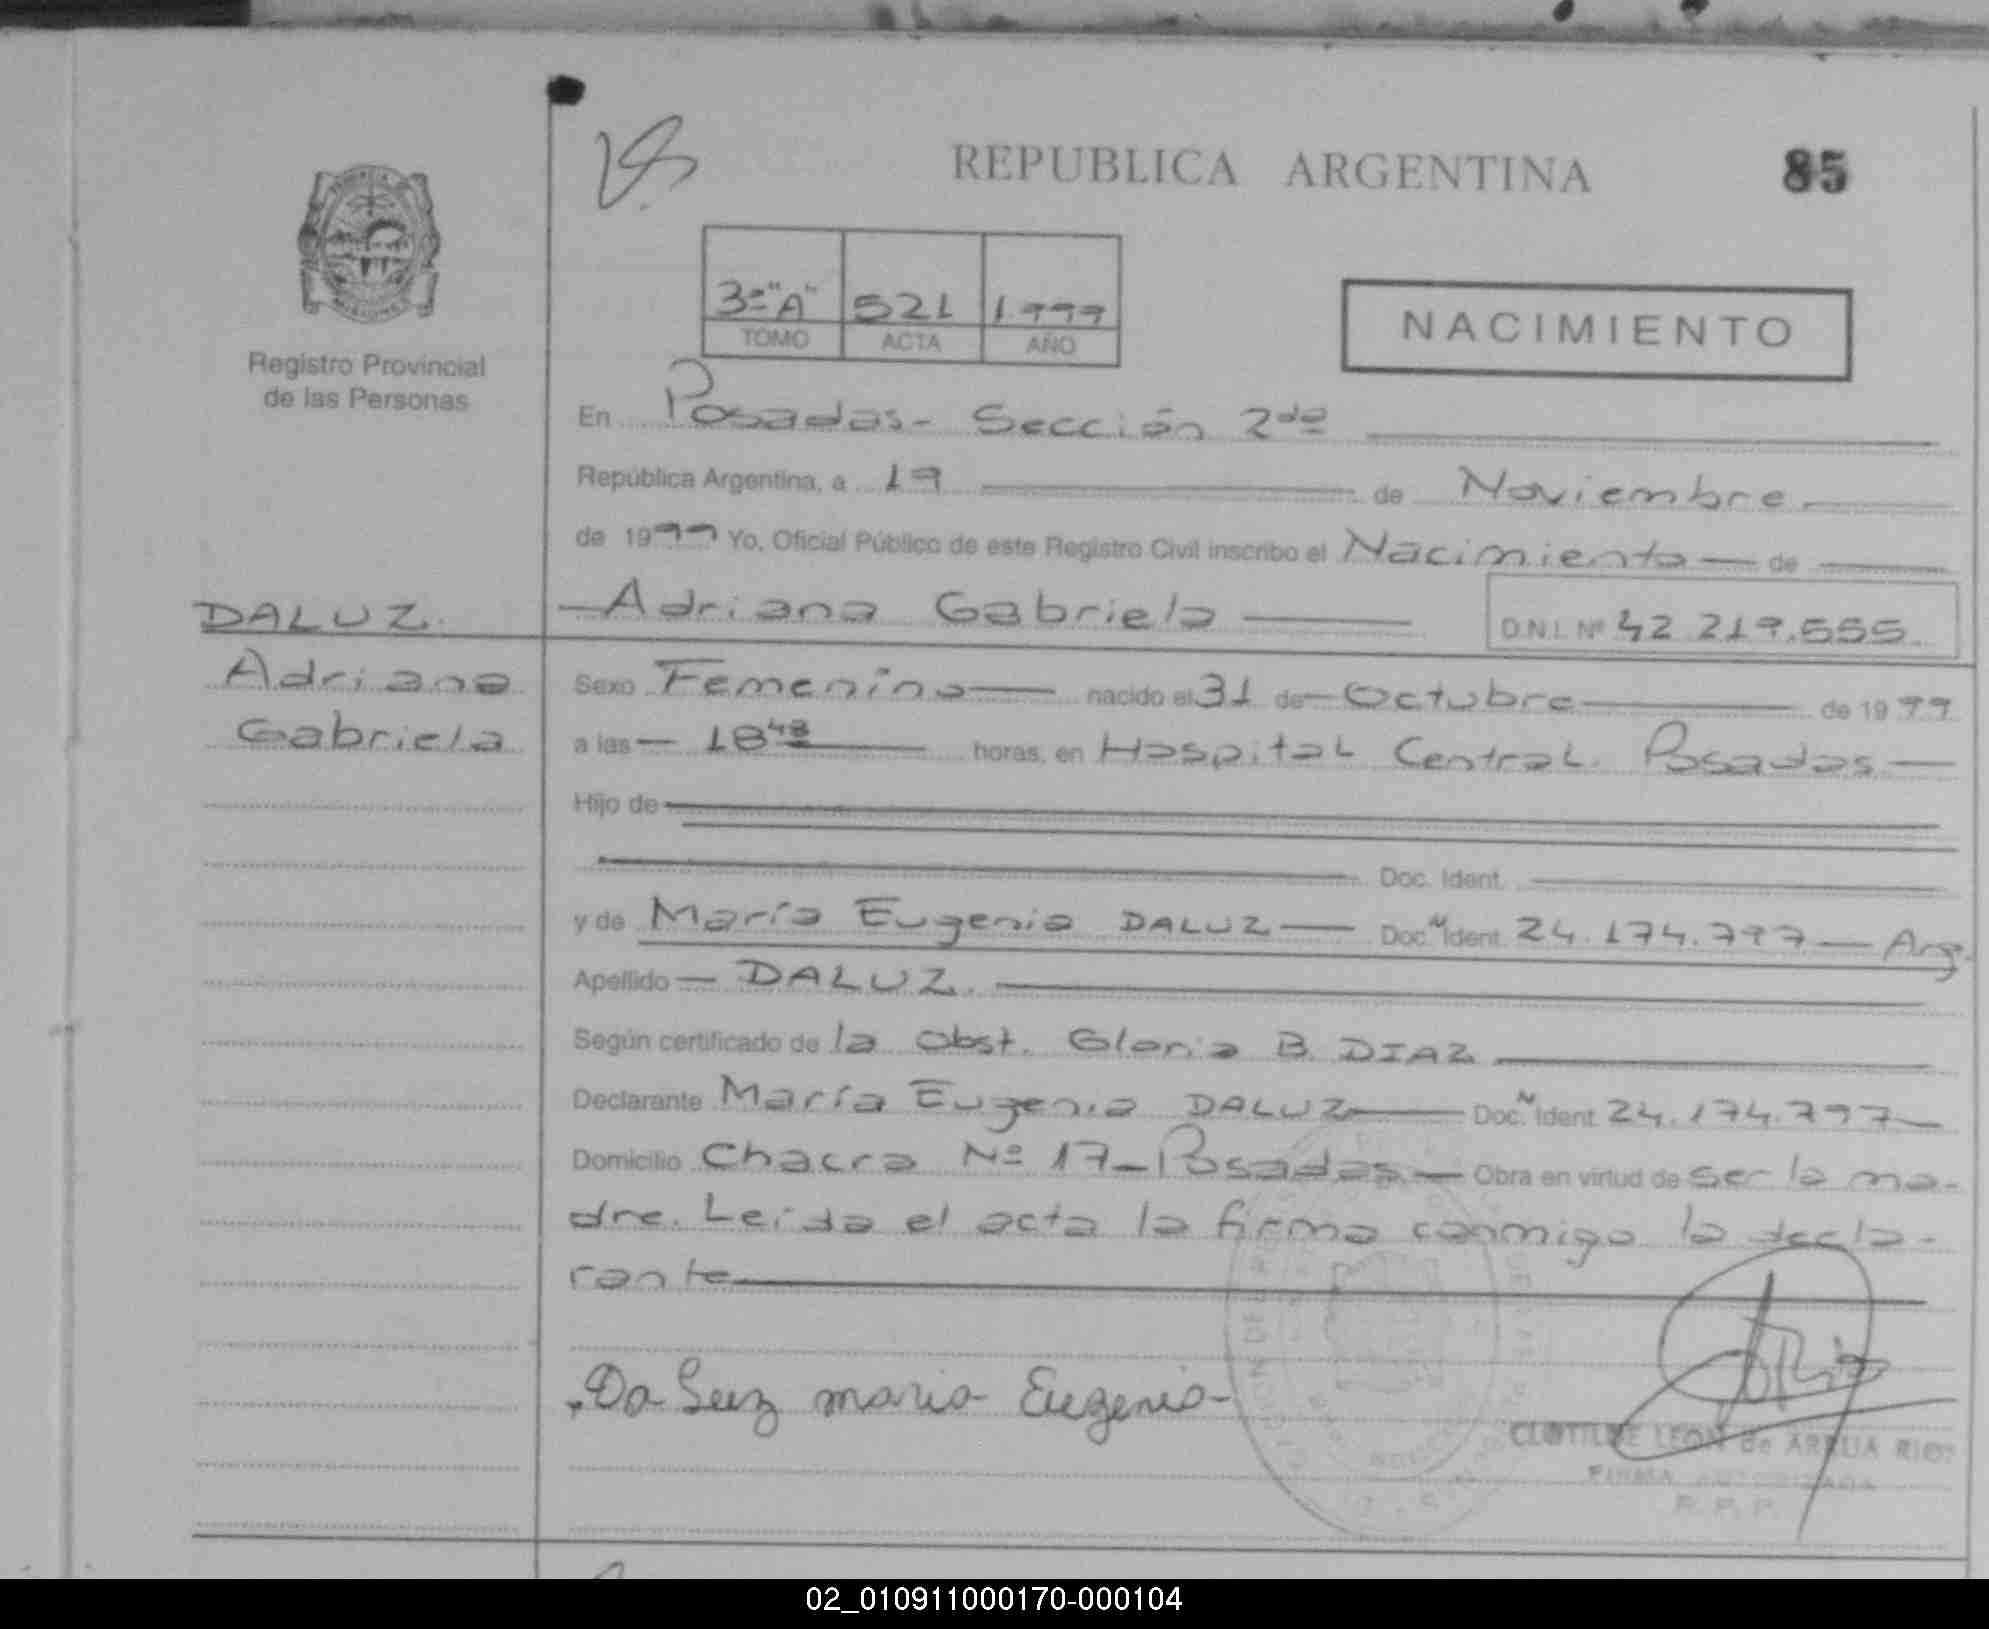 REPUBLICA ARGENTINA
85
3º "A" 521 1999
TOMO ACTA AÑO
NACIMIENTO
Registro Provincial
de las Personas
En Posadas - Sección 2da
República Argentina, a 19 de Noviembre
de 1999 Yo, Oficial Público de este Registro Civil inscribo el Nacimiento de
DALUZ
Adriana
Gabriela
Adriana Gabriela D.N.I. Nº 42 219.555
Sexo Femenino nacido el 31 de Octubre de 1999
a las 18 48 horas, en Hospital Central. Posadas
Hijo de
Doc. Ident.
y de María Eugenia DALUZ Doc. N Ident. 24.174.797 Arg.
Apellido DALUZ.
Según certificado de la Obst. Gloria B. DIAZ
Declarante María Eugenia DALUZ Doc. N Ident. 24.174.797
Domicilio Chacra Nº 17 - Posadas Obra en virtud de ser la ma-
dre. Leída el acta la firma conmigo la decla-
rante
Da Luz maria Eugenia
CLOTILDE LEON de ARRUA RIOS
FIRMA AUTORIZADA
R. P. P.
02_010911000170-000104